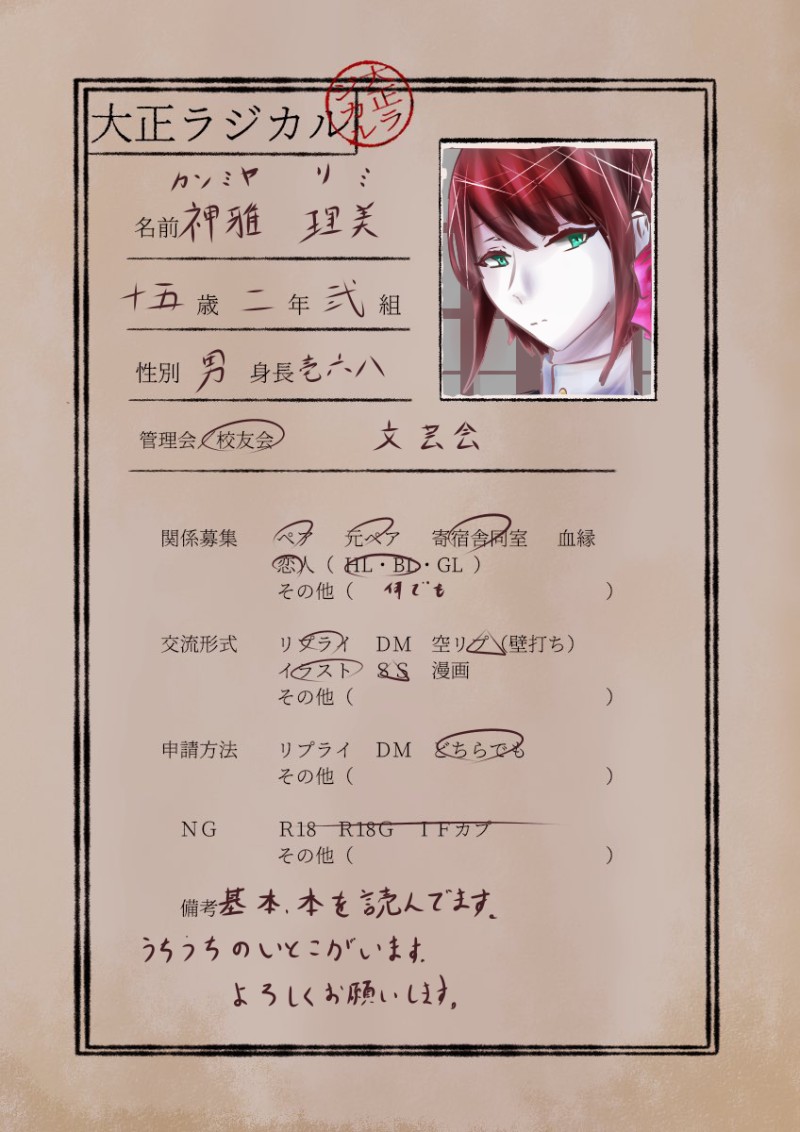 大正ラジカル
大正ラジカル
カンミヤ リミ
名前 神雅 理美
十五 歳 二 年 弐 組
性別 男 身長 壱六八
管理会/校友会 文芸会
関係募集 ペア 元ペア 寄宿舎同室 血縁
恋人（HL・BL・GL）
その他（ 何でも ）
交流形式 リプライ DM 空リプ（壁打ち）
イラスト SS 漫画
その他（ ）
申請方法 リプライ DM どちらでも
その他（ ）
NG R18 R18G IFカプ
その他（ ）
備考 基本、本を読んでます。
うちうちのいとこがいます。
よろしくお願いします。